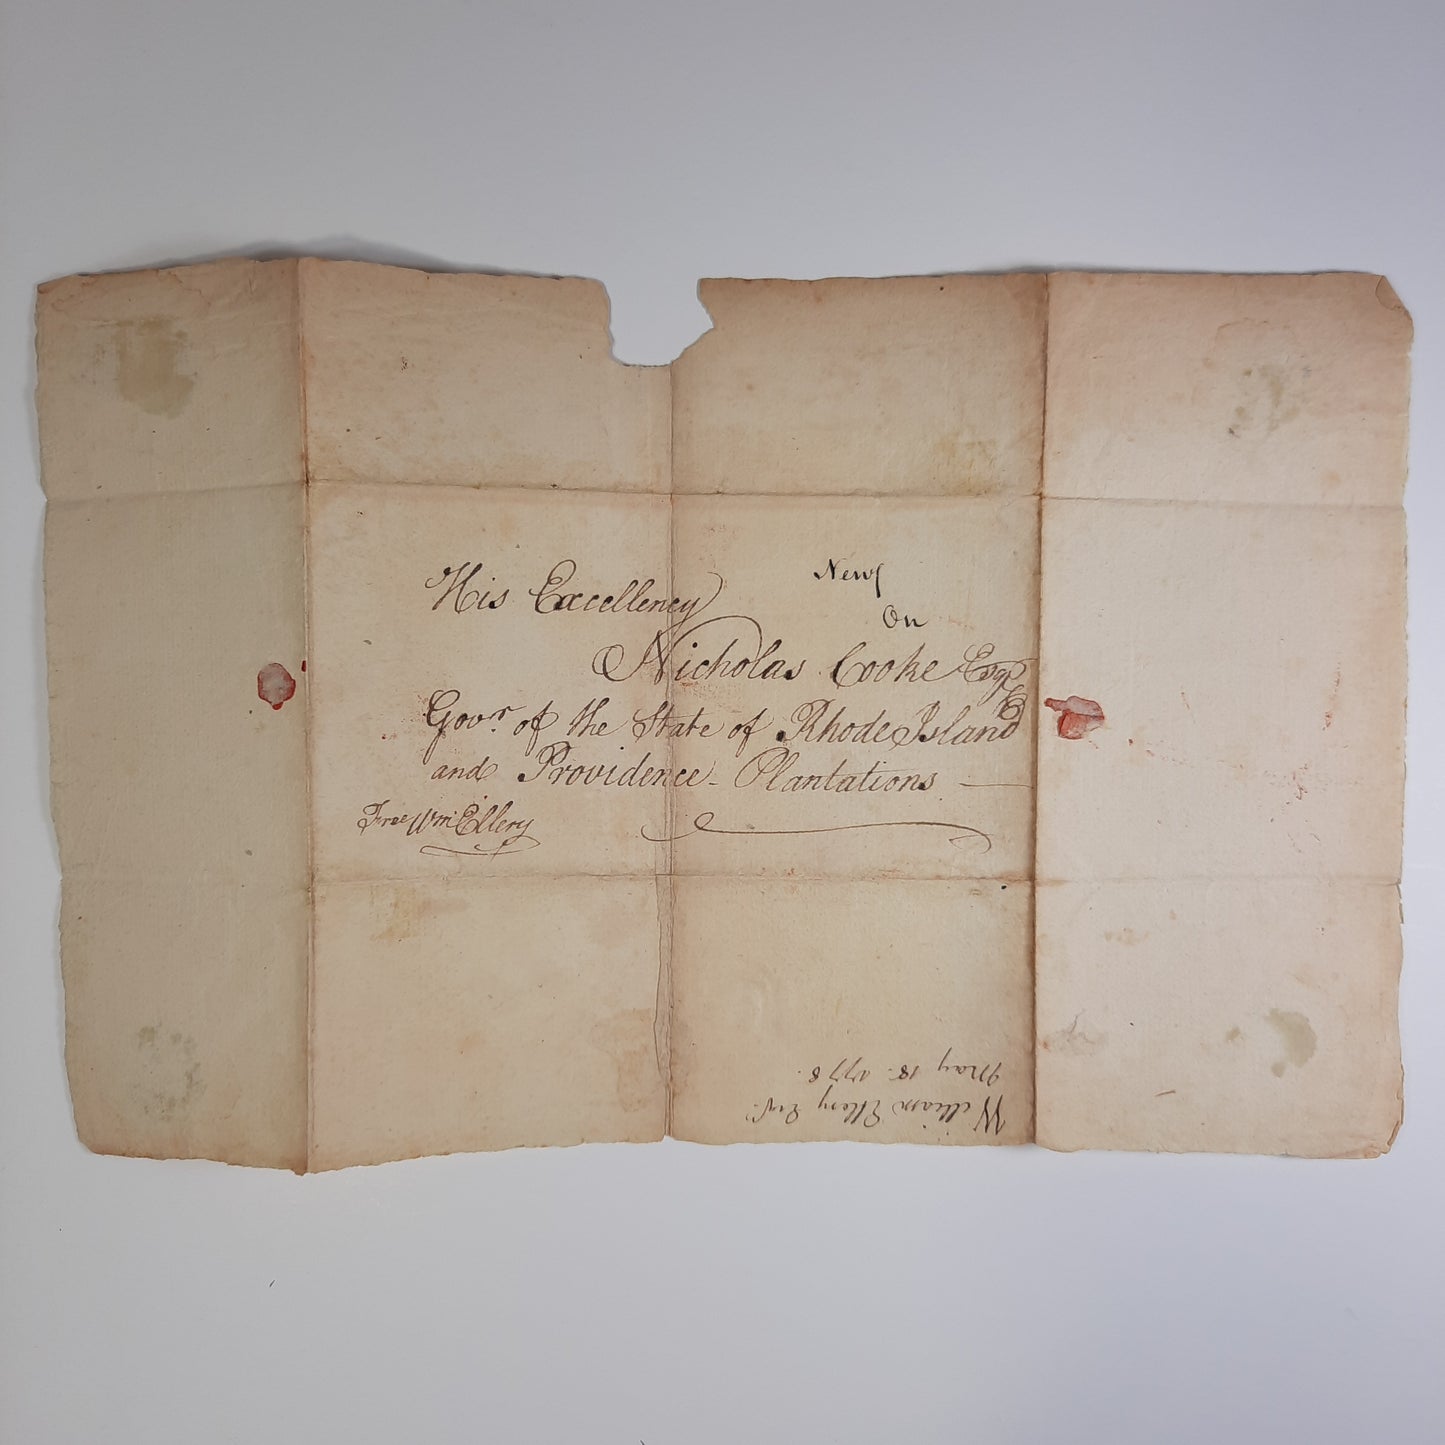 His Excellency
New
On
Nicholas Cooke Esqr
Govr. of the State of Rhode Island
and Providence - Plantations
Free Wm Ellery
William Ellery
May 18. 1778.